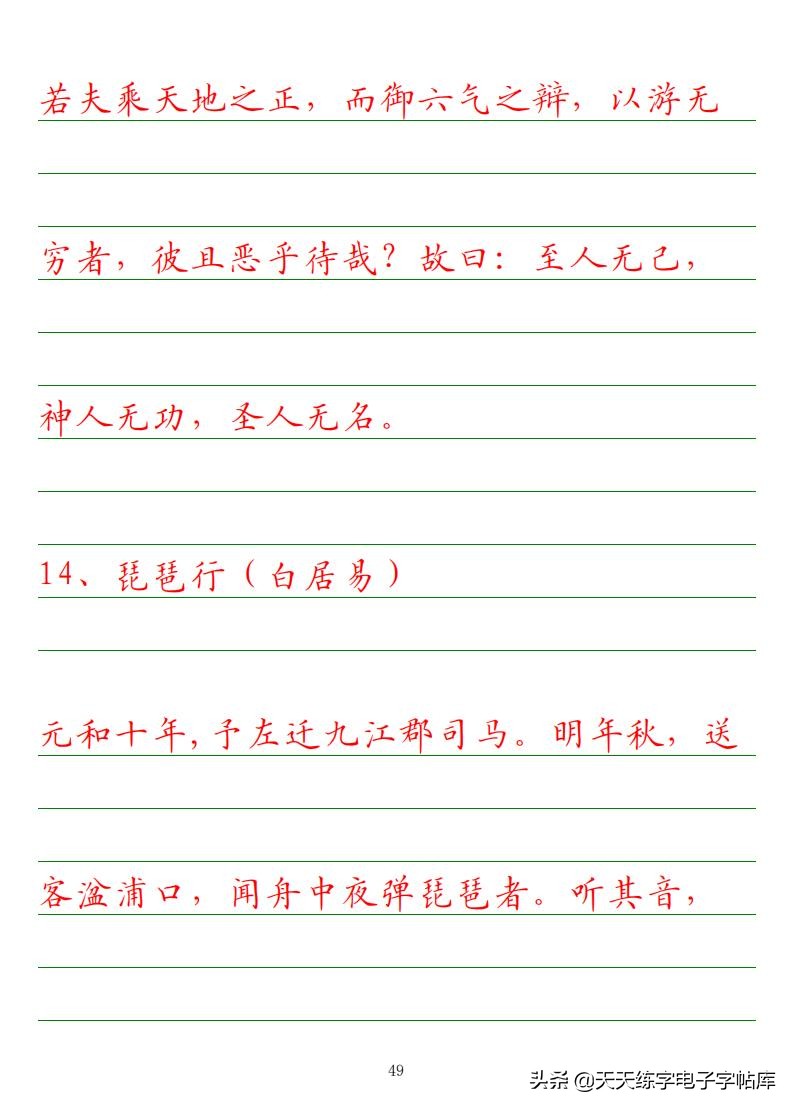 若夫乘天地之正，而御六气之辩，以游无
穷者，彼且恶乎待哉？故曰：至人无己，
神人无功，圣人无名。
14、琵琶行（白居易）
元和十年,予左迁九江郡司马。明年秋，送
客湓浦口，闻舟中夜弹琵琶者。听其音，
49
头条 @天天练字电子字帖库